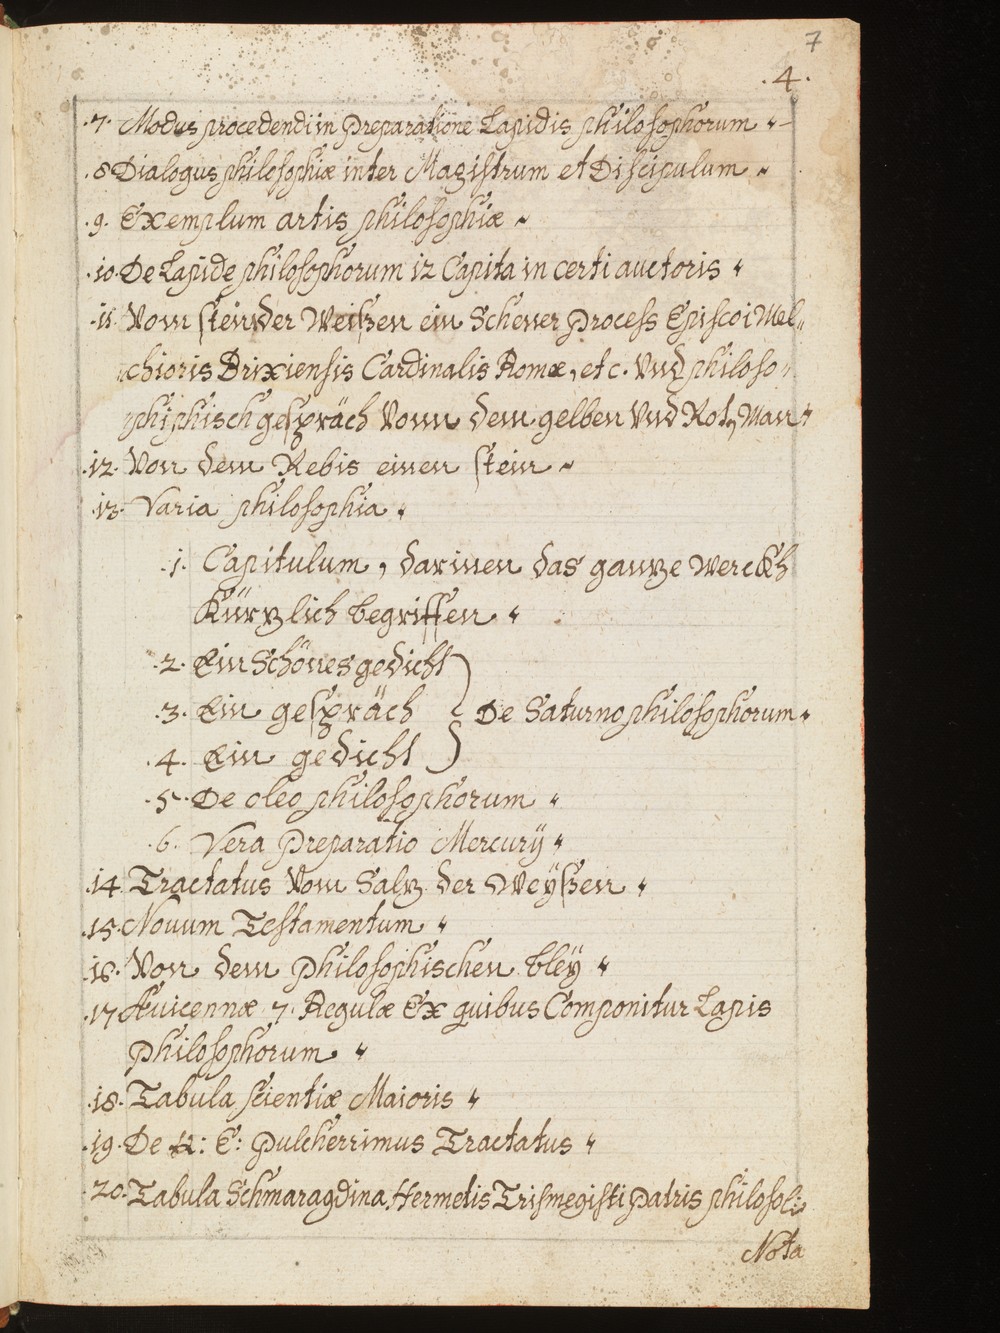 7
.4.
.7. Modus procedendi in Preparatione Lapidis philosophorum
.8 Dialogus philosophiæ inter Magistrum et Discipulum
.9. Exemplum artis philosophiæ
.10. De Lapide philosophorum 12 Capita in certi auctoris
.11 Vom stein der Weisen ein Schener Process Episcoi Mel„
chioris Brixiensis Cardinalis Romæ, etc. Vnd philoso„
phiphisch gespräch Vonn dem gelben Vnd Roten Man
.12. Von dem Rebis einen stein
.13. Varia philosophia
.1. Capitulum, darinen das ganze werckh
Kürzlich begriffen
.2. Ein Schönes gedicht
.3. Ein gespräch } De Saturno philosophorum
.4. Ein gedicht
.5. De oleo philosophorum
.6. Vera Preparatio Mercurÿ
.14. Tractatus Vom Salz der Weÿsen
.15. Nouum Testamentum
.16. Von dem Philosophischen bleÿ
.17 Auicennæ 7. Regulæ Ex quibus Componitur Lapis
Philosophorum
.18. Tabula scientiæ Maioris
.19. De : E: Pulcherrimus Tractatus
.20. Tabula Schmaragdina Hermetis Trismegisti Patris philoso
Nota